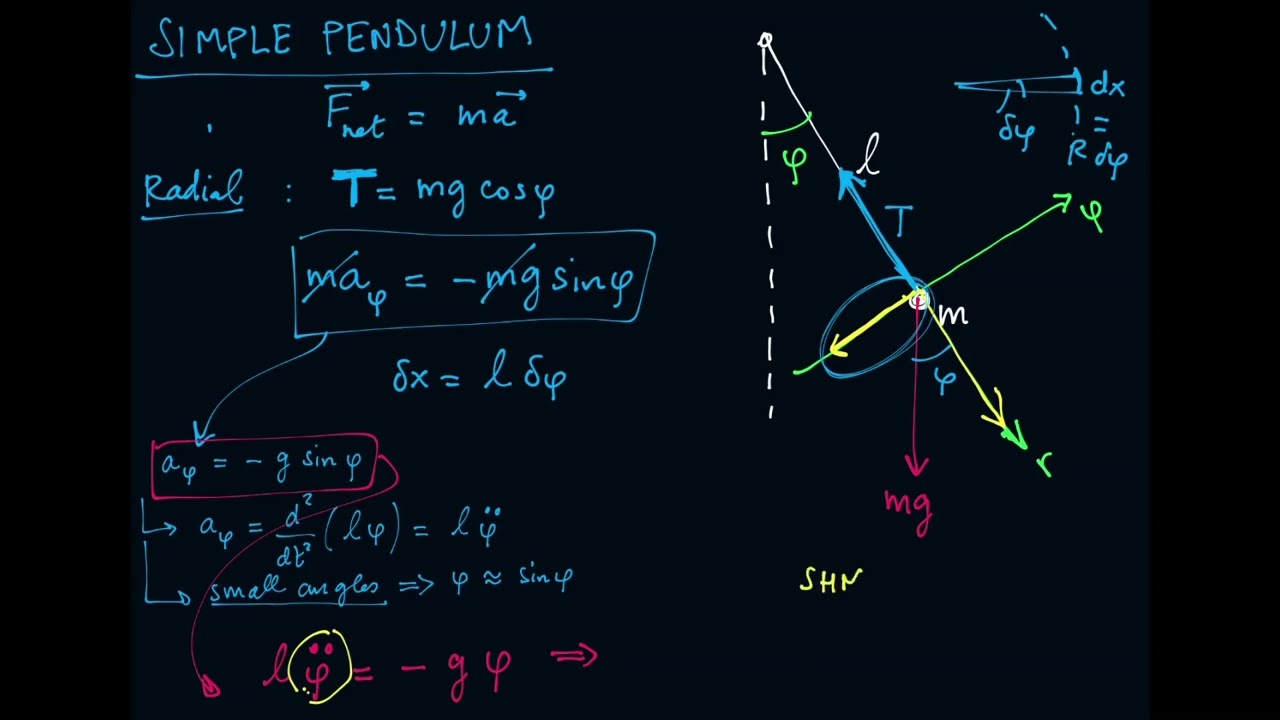 SIMPLE PENDULUM
F⃗net = ma⃗
Radial : T = mg cosφ
maφ = - mg sinφ
δx = l δφ
aφ = - g sinφ
aφ = d²/dt² (lφ) = l φ̈
small angles => φ ≈ sinφ
l φ̈ = - g φ =>
φ
l
T
m
φ
φ
r
mg
dx
=
R δφ
δφ
SHM